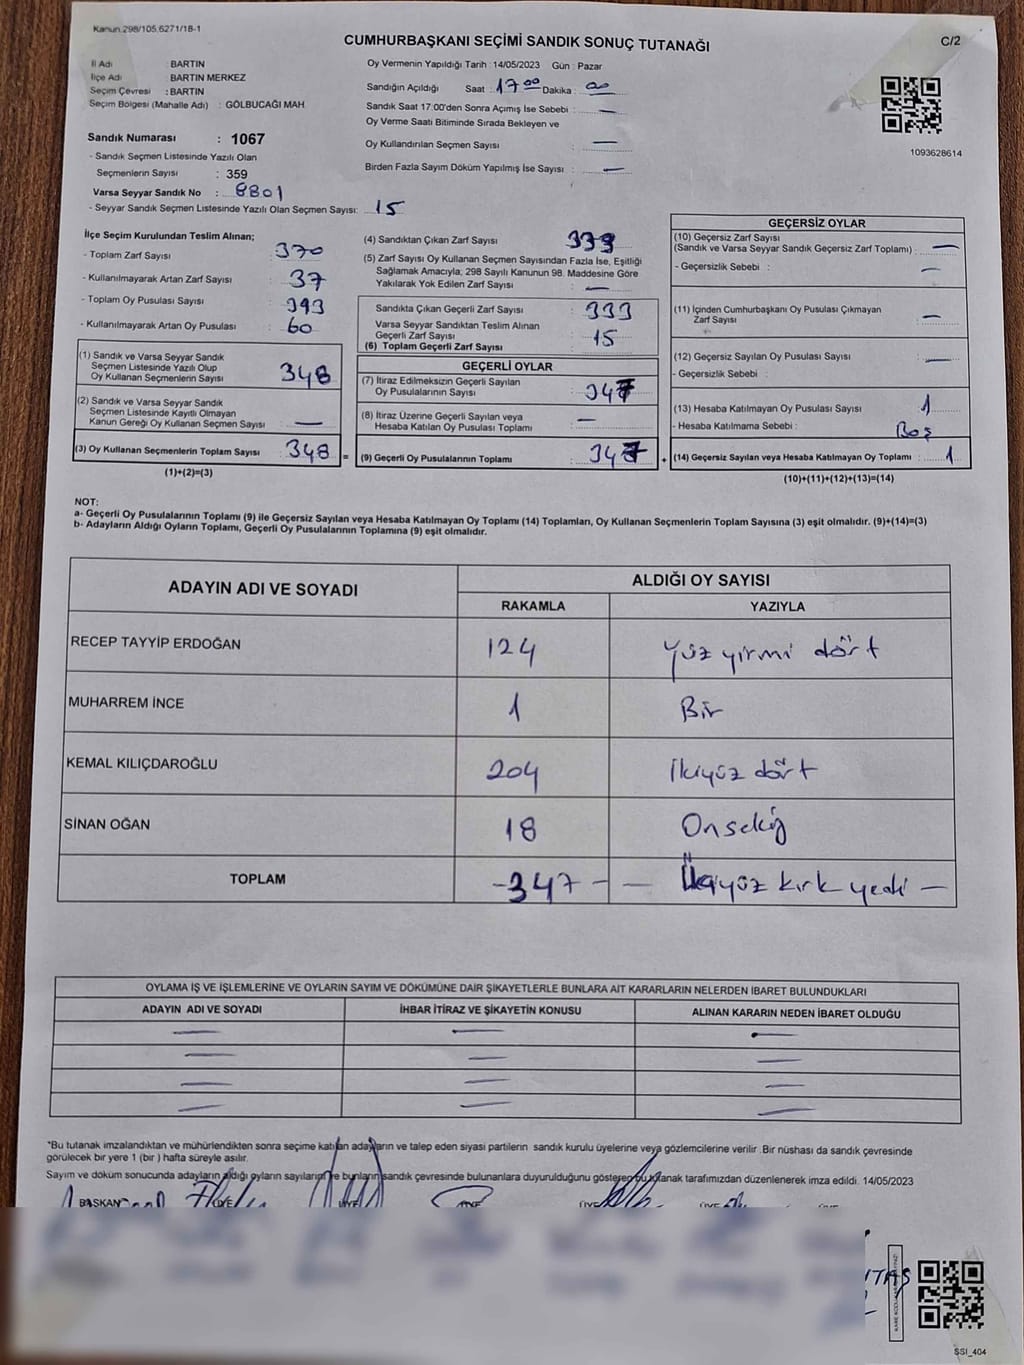 Kanun.298/105.6271/18-1
C/2
CUMHURBAŞKANI SEÇİMİ SANDIK SONUÇ TUTANAĞI
İl Adı BARTIN
İlçe Adı BARTIN MERKEZ
Seçim Çevresi : BARTIN
Seçim Bölgesi (Mahalle Adı) : GÖLBUCAĞI MAH
Sandık Numarası : 1067
- Sandık Seçmen Listesinde Yazılı Olan
Seçmenlerin Sayısı : 359
Varsa Seyyar Sandık No : 8801
- Seyyar Sandık Seçmen Listesinde Yazılı Olan Seçmen Sayısı: 15
Oy Vermenin Yapıldığı Tarih : 14/05/2023 Gün : Pazar
Sandığın Açıldığı Saat : 17 00 Dakika : 00
Sandık Saat 17:00'den Sonra Açımış İse Sebebi : —
Oy Verme Saati Bitiminde Sırada Bekleyen ve
Oy Kullandırılan Seçmen Sayısı : —
Birden Fazla Sayım Döküm Yapılmış İse Sayısı : —
1093628614
İlçe Seçim Kurulundan Teslim Alınan;
- Toplam Zarf Sayısı : 370
- Kullanılmayarak Artan Zarf Sayısı : 37
- Toplam Oy Pusulası Sayısı : 393
- Kullanılmayarak Artan Oy Pusulası : 60
(1) Sandık ve Varsa Seyyar Sandık
Seçmen Listesinde Yazılı Olup
Oy Kullanan Seçmenlerin Sayısı : 348
(2) Sandık ve Varsa Seyyar Sandık
Seçmen Listesinde Kayıtlı Olmayan
Kanun Gereği Oy Kullanan Seçmen Sayısı : —
(3) Oy Kullanan Seçmenlerin Toplam Sayısı : 348
(1)+(2)=(3)
=
(4) Sandıktan Çıkan Zarf Sayısı : 333
(5) Zarf Sayısı Oy Kullanan Seçmen Sayısından Fazla İse, Eşitliği
Sağlamak Amacıyla; 298 Sayılı Kanunun 98. Maddesine Göre
Yakılarak Yok Edilen Zarf Sayısı : —
Sandıkta Çıkan Geçerli Zarf Sayısı : 333
Varsa Seyyar Sandıktan Teslim Alınan
Geçerli Zarf Sayısı : 15
(6) Toplam Geçerli Zarf Sayısı :
GEÇERLİ OYLAR
(7) İtiraz Edilmeksizin Geçerli Sayılan
Oy Pusulalarının Sayısı : 347
(8) İtiraz Üzerine Geçerli Sayılan veya
Hesaba Katılan Oy Pusulası Toplamı : —
(9) Geçerli Oy Pusulalarının Toplamı : 347
+
GEÇERSİZ OYLAR
(10) Geçersiz Zarf Sayısı
(Sandık ve Varsa Seyyar Sandık Geçersiz Zarf Toplamı) : —
- Geçersizlik Sebebi : —
(11) İçinden Cumhurbaşkanı Oy Pusulası Çıkmayan
Zarf Sayısı : —
(12) Geçersiz Sayılan Oy Pusulası Sayısı : —
- Geçersizlik Sebebi :
(13) Hesaba Katılmayan Oy Pusulası Sayısı : 1
- Hesaba Katılmama Sebebi : Boş
(14) Geçersiz Sayılan veya Hesaba Katılmayan Oy Toplamı : 1
(10)+(11)+(12)+(13)=(14)
NOT:
a- Geçerli Oy Pusulalarının Toplamı (9) ile Geçersiz Sayılan veya Hesaba Katılmayan Oy Toplamı (14) Toplamları, Oy Kullanan Seçmenlerin Toplam Sayısına (3) eşit olmalıdır. (9)+(14)=(3)
b- Adayların Aldığı Oyların Toplamı, Geçerli Oy Pusulalarının Toplamına (9) eşit olmalıdır.
ADAYIN ADI VE SOYADI ALDIĞI OY SAYISI
RAKAMLA YAZIYLA
RECEP TAYYİP ERDOĞAN 124 Yüz yirmi dört
MUHARREM İNCE 1 Bir
KEMAL KILIÇDAROĞLU 204 İkiyüz dört
SİNAN OĞAN 18 Onsekiz
TOPLAM -347- — kırk yedi —
OYLAMA İŞ VE İŞLEMLERİNE VE OYLARIN SAYIM VE DÖKÜMÜNE DAİR ŞİKAYETLERLE BUNLARA AİT KARARLARIN NELERDEN İBARET BULUNDUKLARI
ADAYIN ADI VE SOYADI İHBAR İTİRAZ VE ŞİKAYETİN KONUSU ALINAN KARARIN NEDEN İBARET OLDUĞU
— — —
— — —
— — —
— — —
*Bu tutanak imzalandıktan ve mühürlendikten sonra seçime katılan adayların ve talep eden siyasi partilerin sandık kurulu üyelerine veya gözlemcilerine verilir. Bir nüshası da sandık çevresinde
görülecek bir yere 1 (bir) hafta süreyle asılır.
Sayım ve döküm sonucunda adayların aldığı oyların sayılarını ve bunların sandık çevresinde bulunanlara duyurulduğunu gösteren bu tutanak tarafımızdan düzenlenerek imza edildi. 14/05/2023
BAŞKAN ÜYE ÜYE ÜYE ÜYE ÜYE ÜYE
SSI_404